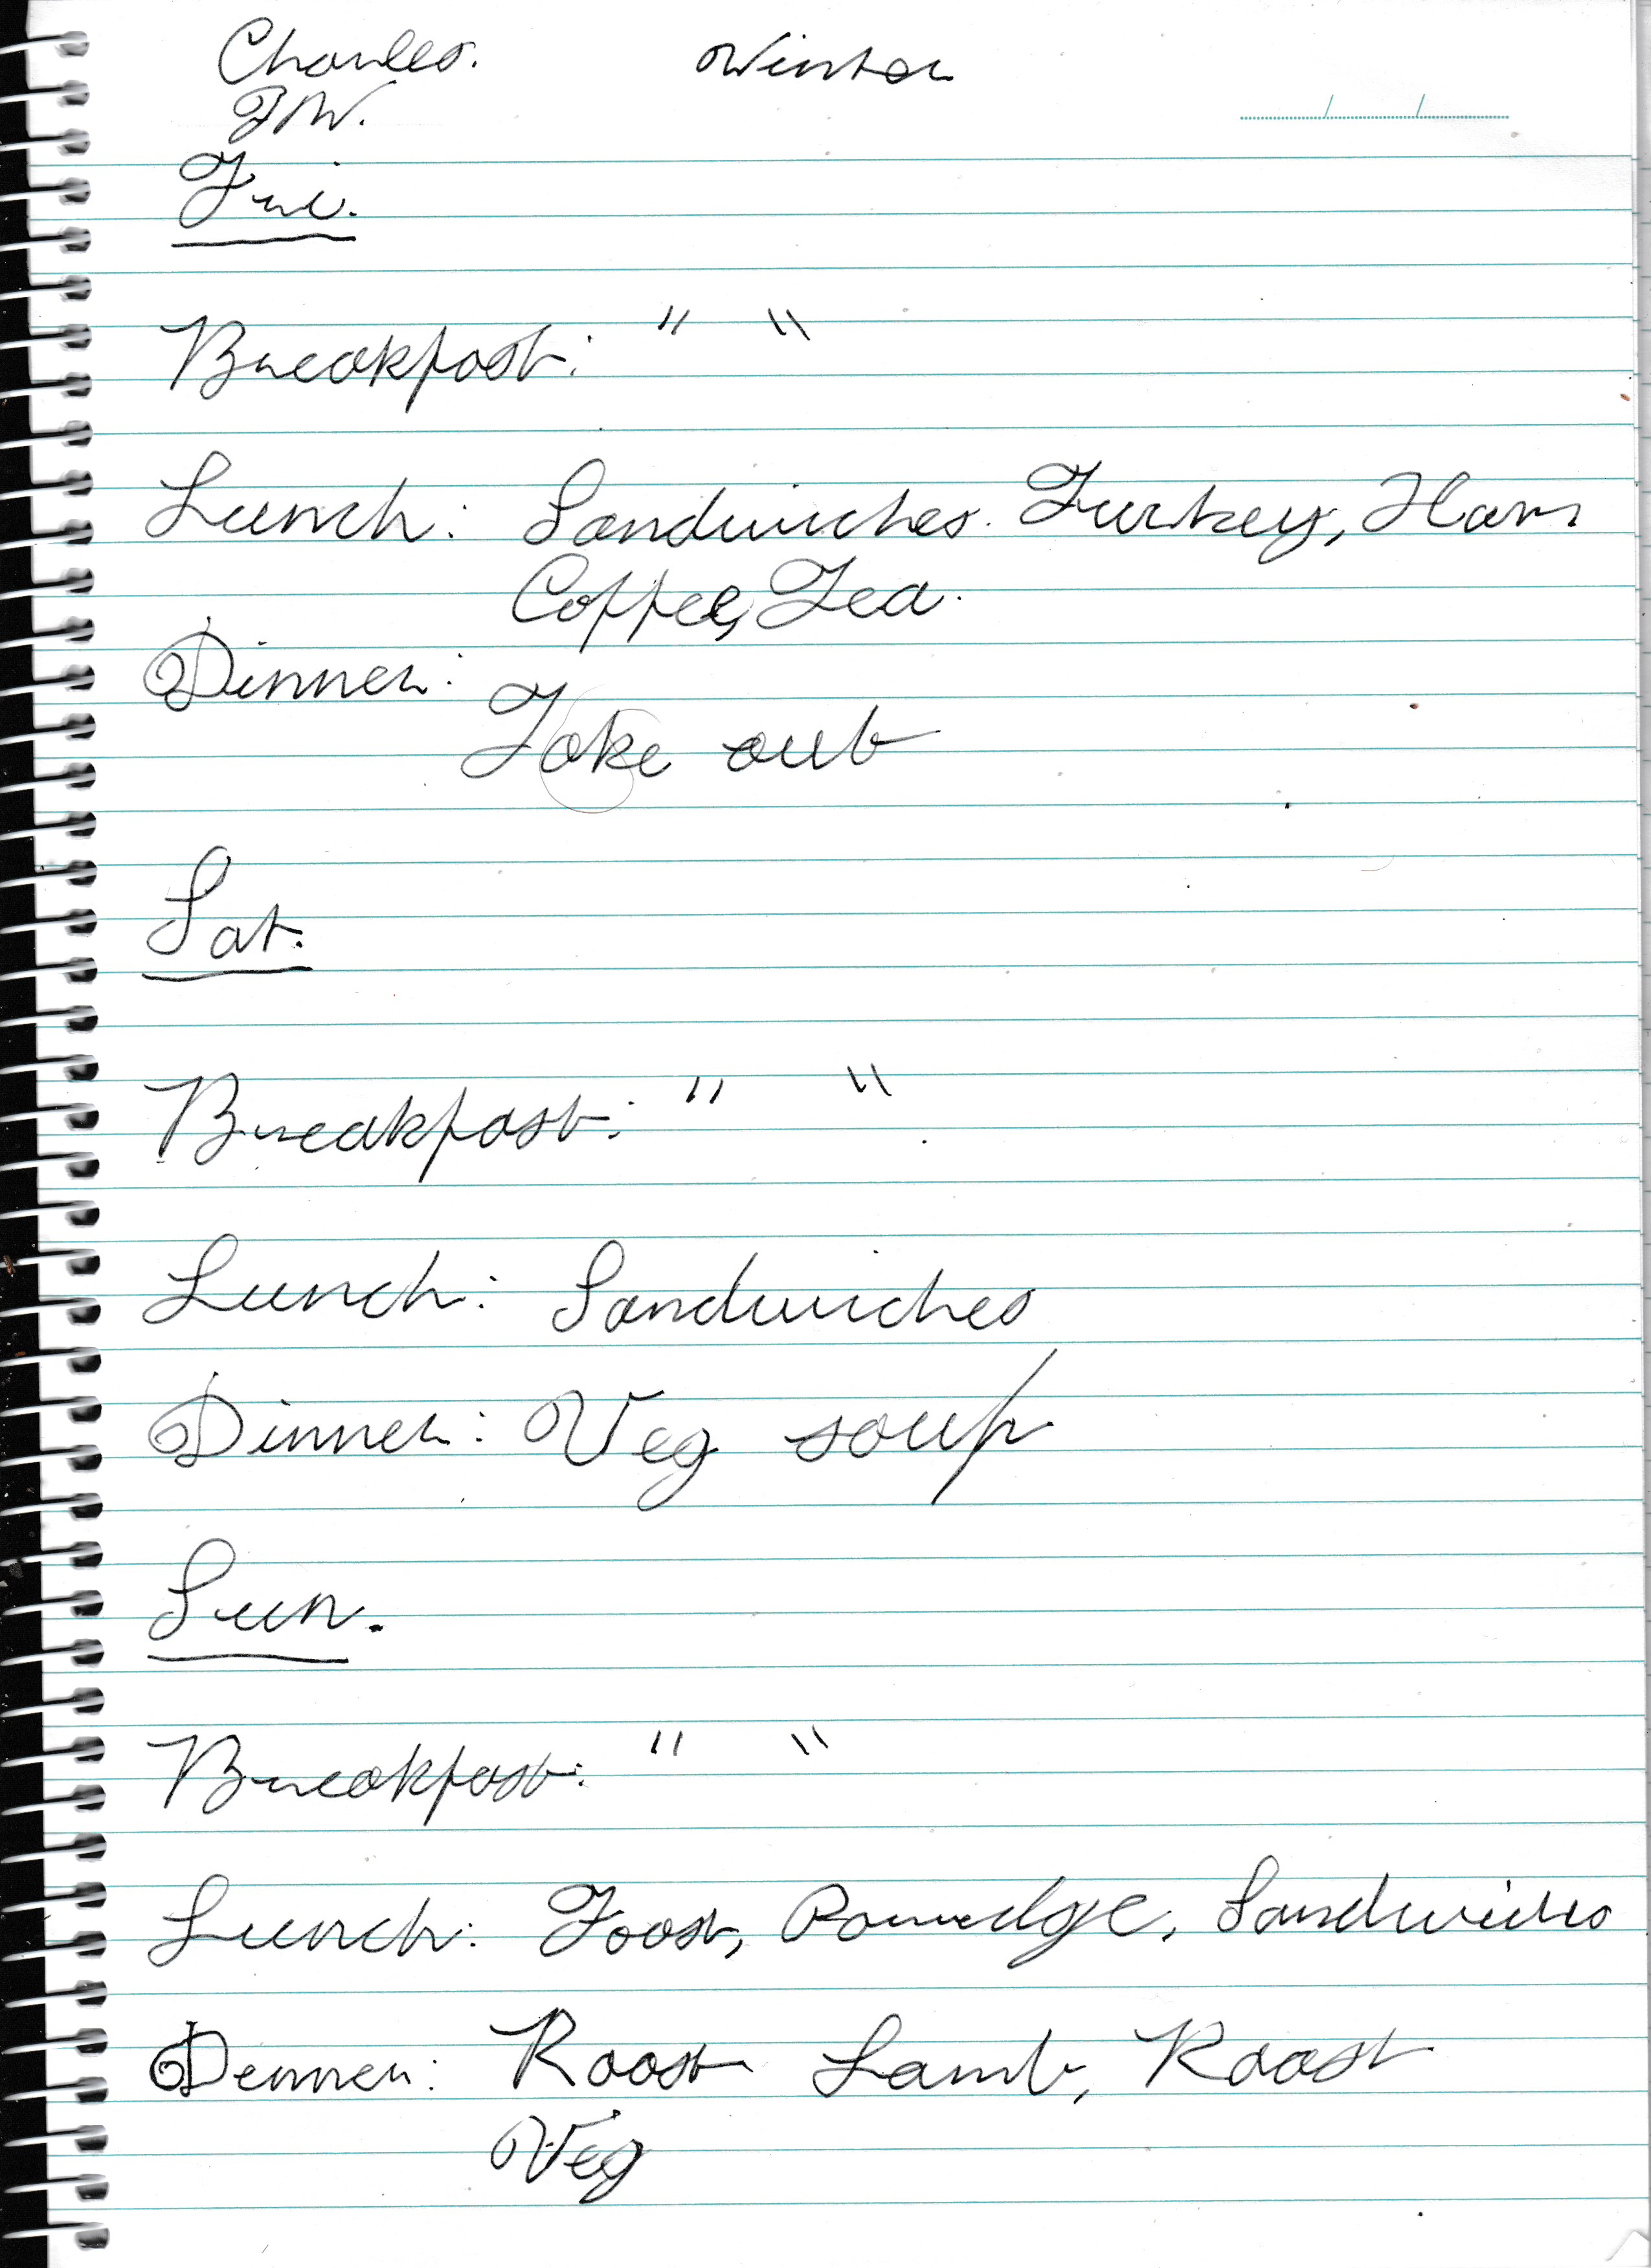 Charles. Winter
J.W.
Fri.
Breakfast: " "
Lunch: Sandwiches. Turkey, Ham
Coffee, Tea.
Dinner:
Take out
Sat.
Breakfast: " "
Lunch: Sandwiches
Dinner: Veg soup
Sun.
Breakfast: " "
Lunch: Toast, Porridge, Sandwiches
Dinner: Roast Lamb, Roast
Veg